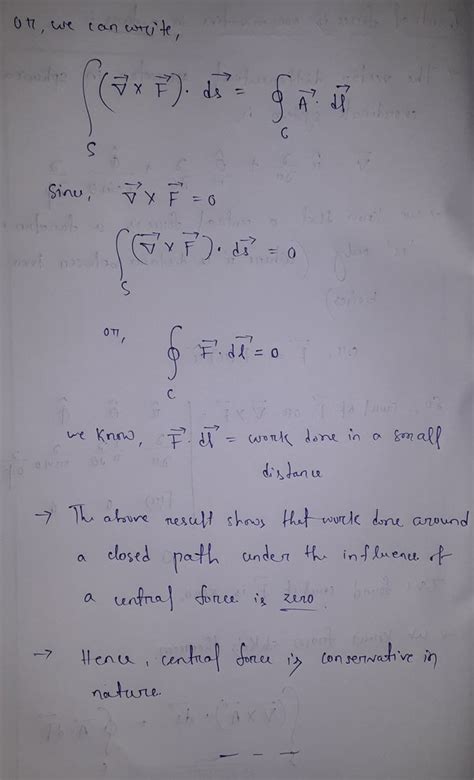 or, we can write,
∫_S (∇⃗ × F⃗) · ds⃗ = ∮_C A⃗ · dl⃗
Since, ∇⃗ × F⃗ = 0
∫_S (∇⃗ × F⃗) · ds⃗ = 0
or, ∮_C F⃗ · dl⃗ = 0
we know, F⃗ · dl⃗ = work done in a small
distance
→ The above result shows that work done around
a closed path under the influence of
a central force is zero.
→ Hence, central force is conservative in
nature.